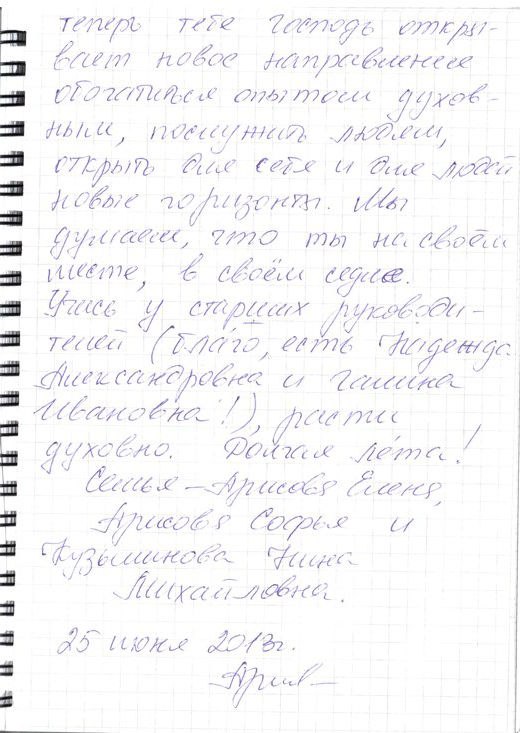 теперь тебе Господь откры-
вает новое направление
обогатиться опытом духов-
ным, послужить людям,
открыть для себя и для людей
новые горизонты. Мы
думаем, что ты на своём
месте, в своём седле.
Учись у старших руководи-
телей (благо, есть Надежда
Александровна и Галина
Ивановна!), расти
духовно. Долгая лета!
Семья – Арисова Елена,
Арисова Софья и
Кузьминова Нина
Михайловна.
25 июня 2013г.